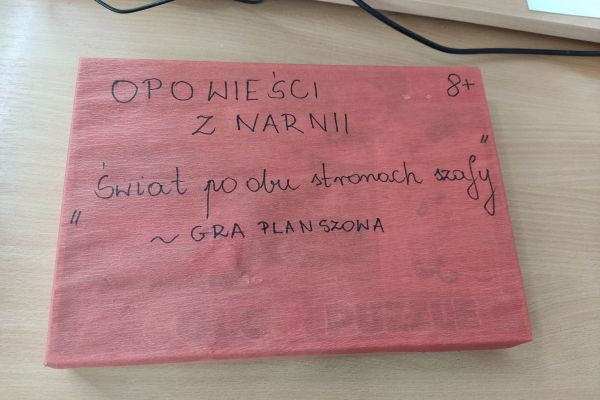 OPOWIEŚCI 8+
Z NARNII
"Świat po obu stronach szafy"
~ GRA PLANSZOWA
PUZZLE